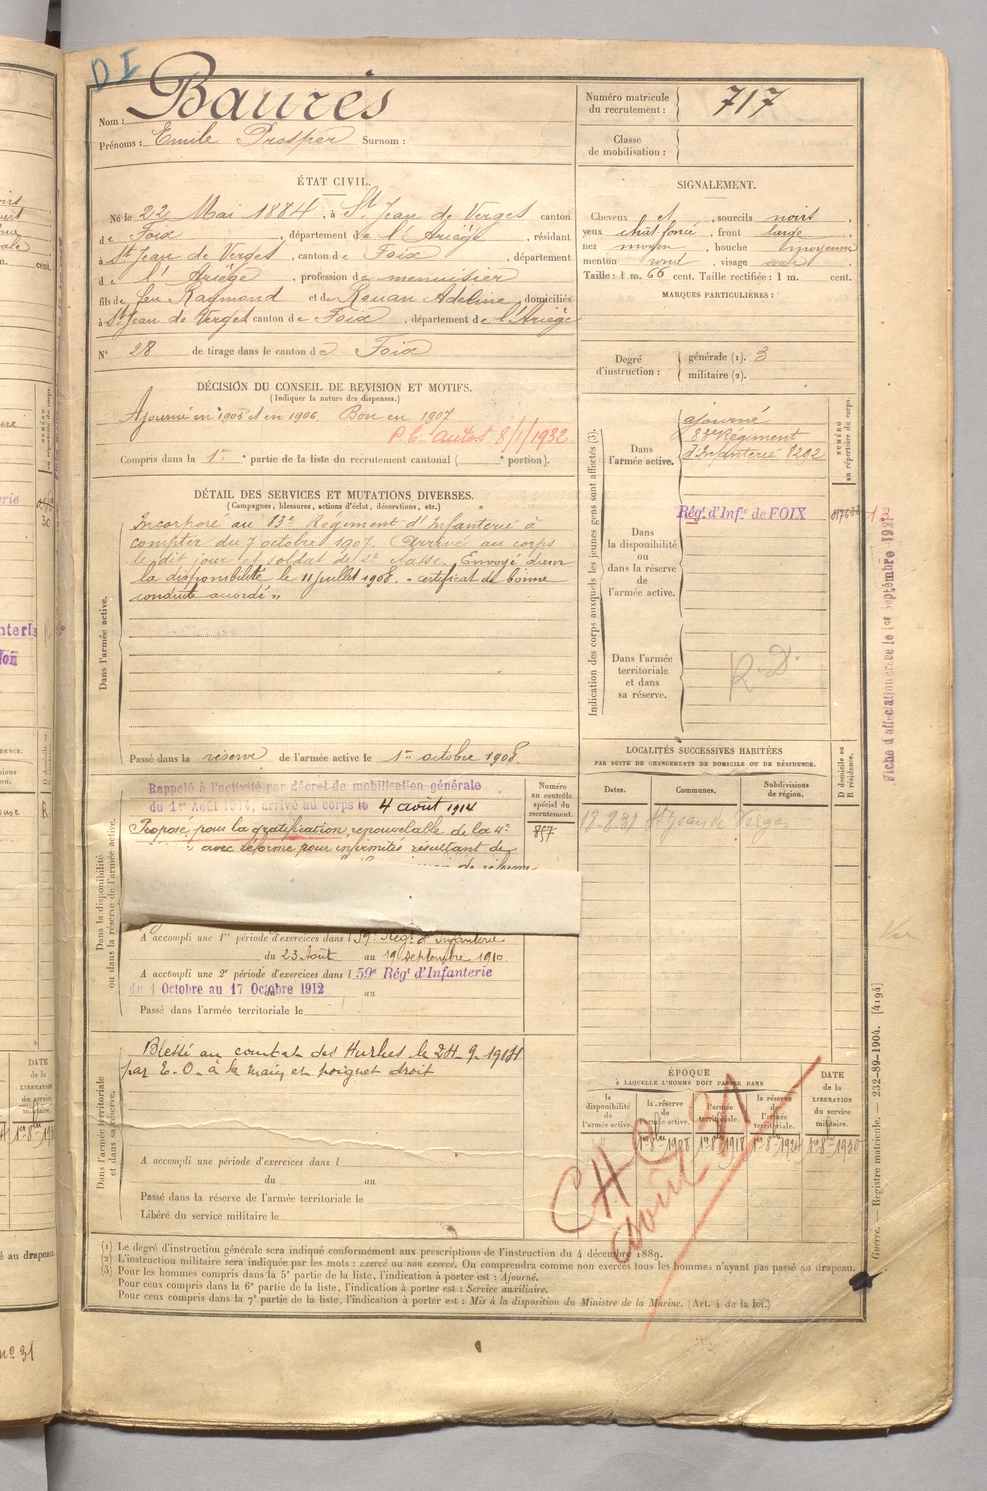 DI
Nom : Baurès
Prénoms : Emile Prosper Surnom :
Numéro matricule du recrutement : 717
Classe de mobilisation :
ÉTAT CIVIL.
Né le 22 Mai 1884, à St Jean de Verges canton
de Foix, département de l'Ariège, résidant
à St Jean de Verges, canton de Foix, département
de l'Ariège, profession de menuisier
fils de feu Raymond et de Rouan Adeline, domiciliés
à St Jean de Verges canton de Foix, département de l'Ariège
N° 28 de tirage dans le canton de Foix
SIGNALEMENT.
Cheveux et, sourcils noirs,
yeux chat foncé, front large,
nez moyen, bouche moyenne
menton rond, visage ovale
Taille : 1 m. 66 cent. Taille rectifiée : 1 m. cent.
MARQUES PARTICULIÈRES :
Degré d'instruction : générale (1). 3
militaire (2).
DÉCISION DU CONSEIL DE REVISION ET MOTIFS.
(Indiquer la nature des dispenses.)
Ajourné en 1905 et en 1906. Bon en 1907
P.C. autos 8/1/1932
Compris dans la 1re partie de la liste du recrutement cantonal ( e portion).
DÉTAIL DES SERVICES ET MUTATIONS DIVERSES.
(Campagnes, blessures, actions d'éclat, décorations, etc.)
Dans l'armée active.
Incorporé au 83e Régiment d'Infanterie à
compter du 7 octobre 1907. Arrivé au corps
le dit jour et soldat de 2e classe. Envoyé dans
la disponibilité le 11 juillet 1908. "certificat de bonne
conduite accordé"
Passé dans la réserve de l'armée active le 1er octobre 1908.
Indication des corps auxquels les jeunes gens sont affectés (3).
NUMÉRO au répertoire du corps.
Dans l'armée active.
ajourné
83e Régiment
d'Infanterie 8292
Dans la disponibilité ou dans la réserve de l'armée active.
Régt d'Infie de FOIX
13
Dans l'armée territoriale et dans sa réserve.
R.D.
Fiche d'affectation créée le 1er septembre
LOCALITÉS SUCCESSIVES HABITÉES
PAR SUITE DE CHANGEMENTS DE DOMICILE OU DE RÉSIDENCE.
Dates. Communes. Subdivisions de région. D domicile ou R résidence.
18-8-31 St Jean de Verges
Dans la disponibilité ou dans la réserve de l'armée active.
Numéro au contrôle spécial du recrutement.
857
Rappelé à l'activité par décret de mobilisation générale
du 1er Août 1914, arrivé au corps le 4 août 1914
Proposé pour la gratification renouvelable de la 4e
avec réforme pour infirmités résultant de
A accompli une 1re période d'exercices dans l 59e Régt d'Infanterie
du 23 Août au 19 septembre 1910.
A accompli une 2e période d'exercices dans l 59e Régt d'Infanterie
du 1 Octobre au 17 Octobre 1912 au
Passé dans l'armée territoriale le
Dans l'armée territoriale et dans sa réserve.
Blessé au combat des Hurlus le 24-9-1914
par E.O. à la main et poignet droit
A accompli une période d'exercices dans l
du au
Passé dans la réserve de l'armée territoriale le
Libéré du service militaire le
ÉPOQUE
À LAQUELLE L'HOMME DOIT PASSER DANS
la disponibilité de l'armée active. la réserve de l'armée active. l'armée territoriale. la réserve de l'armée territoriale.
DATE de la LIBÉRATION du service militaire.
1er 8bre 1908 1er 8bre 1918 1er 8bre 1924 1er 8bre 1930
Août 31
(1) Le degré d'instruction générale sera indiqué conformément aux prescriptions de l'instruction du 4 décembre 1889.
(2) L'instruction militaire sera indiquée par les mots : exercé ou non exercé. On comprendra comme non exercés tous les hommes n'ayant pas passé au drapeau.
(3) Pour les hommes compris dans la 5e partie de la liste, l'indication à porter est : Ajourné.
Pour ceux compris dans la 6e partie de la liste, l'indication à porter est : Service auxiliaire.
Pour ceux compris dans la 7e partie de la liste, l'indication à porter est : Mis à la disposition du Ministre de la Marine. (Art. 4 de la loi.)
Guerre. — Registre matricule. — 232-89-1904. [4194]